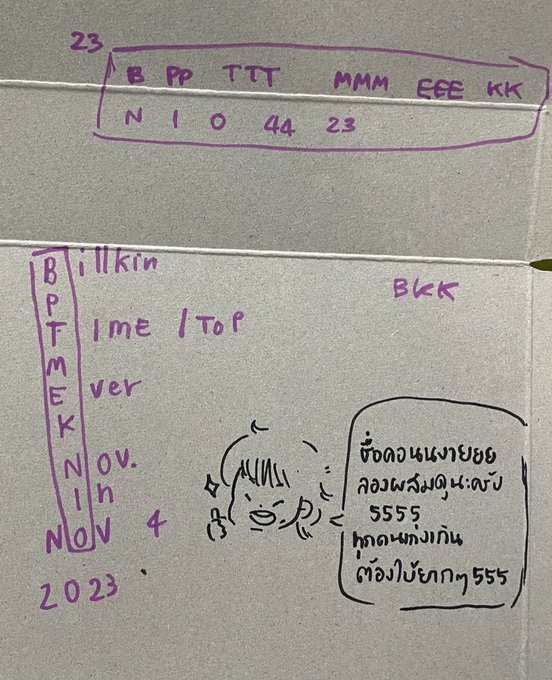 23
B PP TTT MMM EEE KK
N I O 44 23
Billkin
P
TIME / TOP
M
Ever
K
NOV.
In
NOV 4
2023
BKK
ชื่อคอนนงายยย
ลองผสมดูนะครับ
5555
ทุกคนเก่งเกิน
ต้องใบ้ยากๆ 555